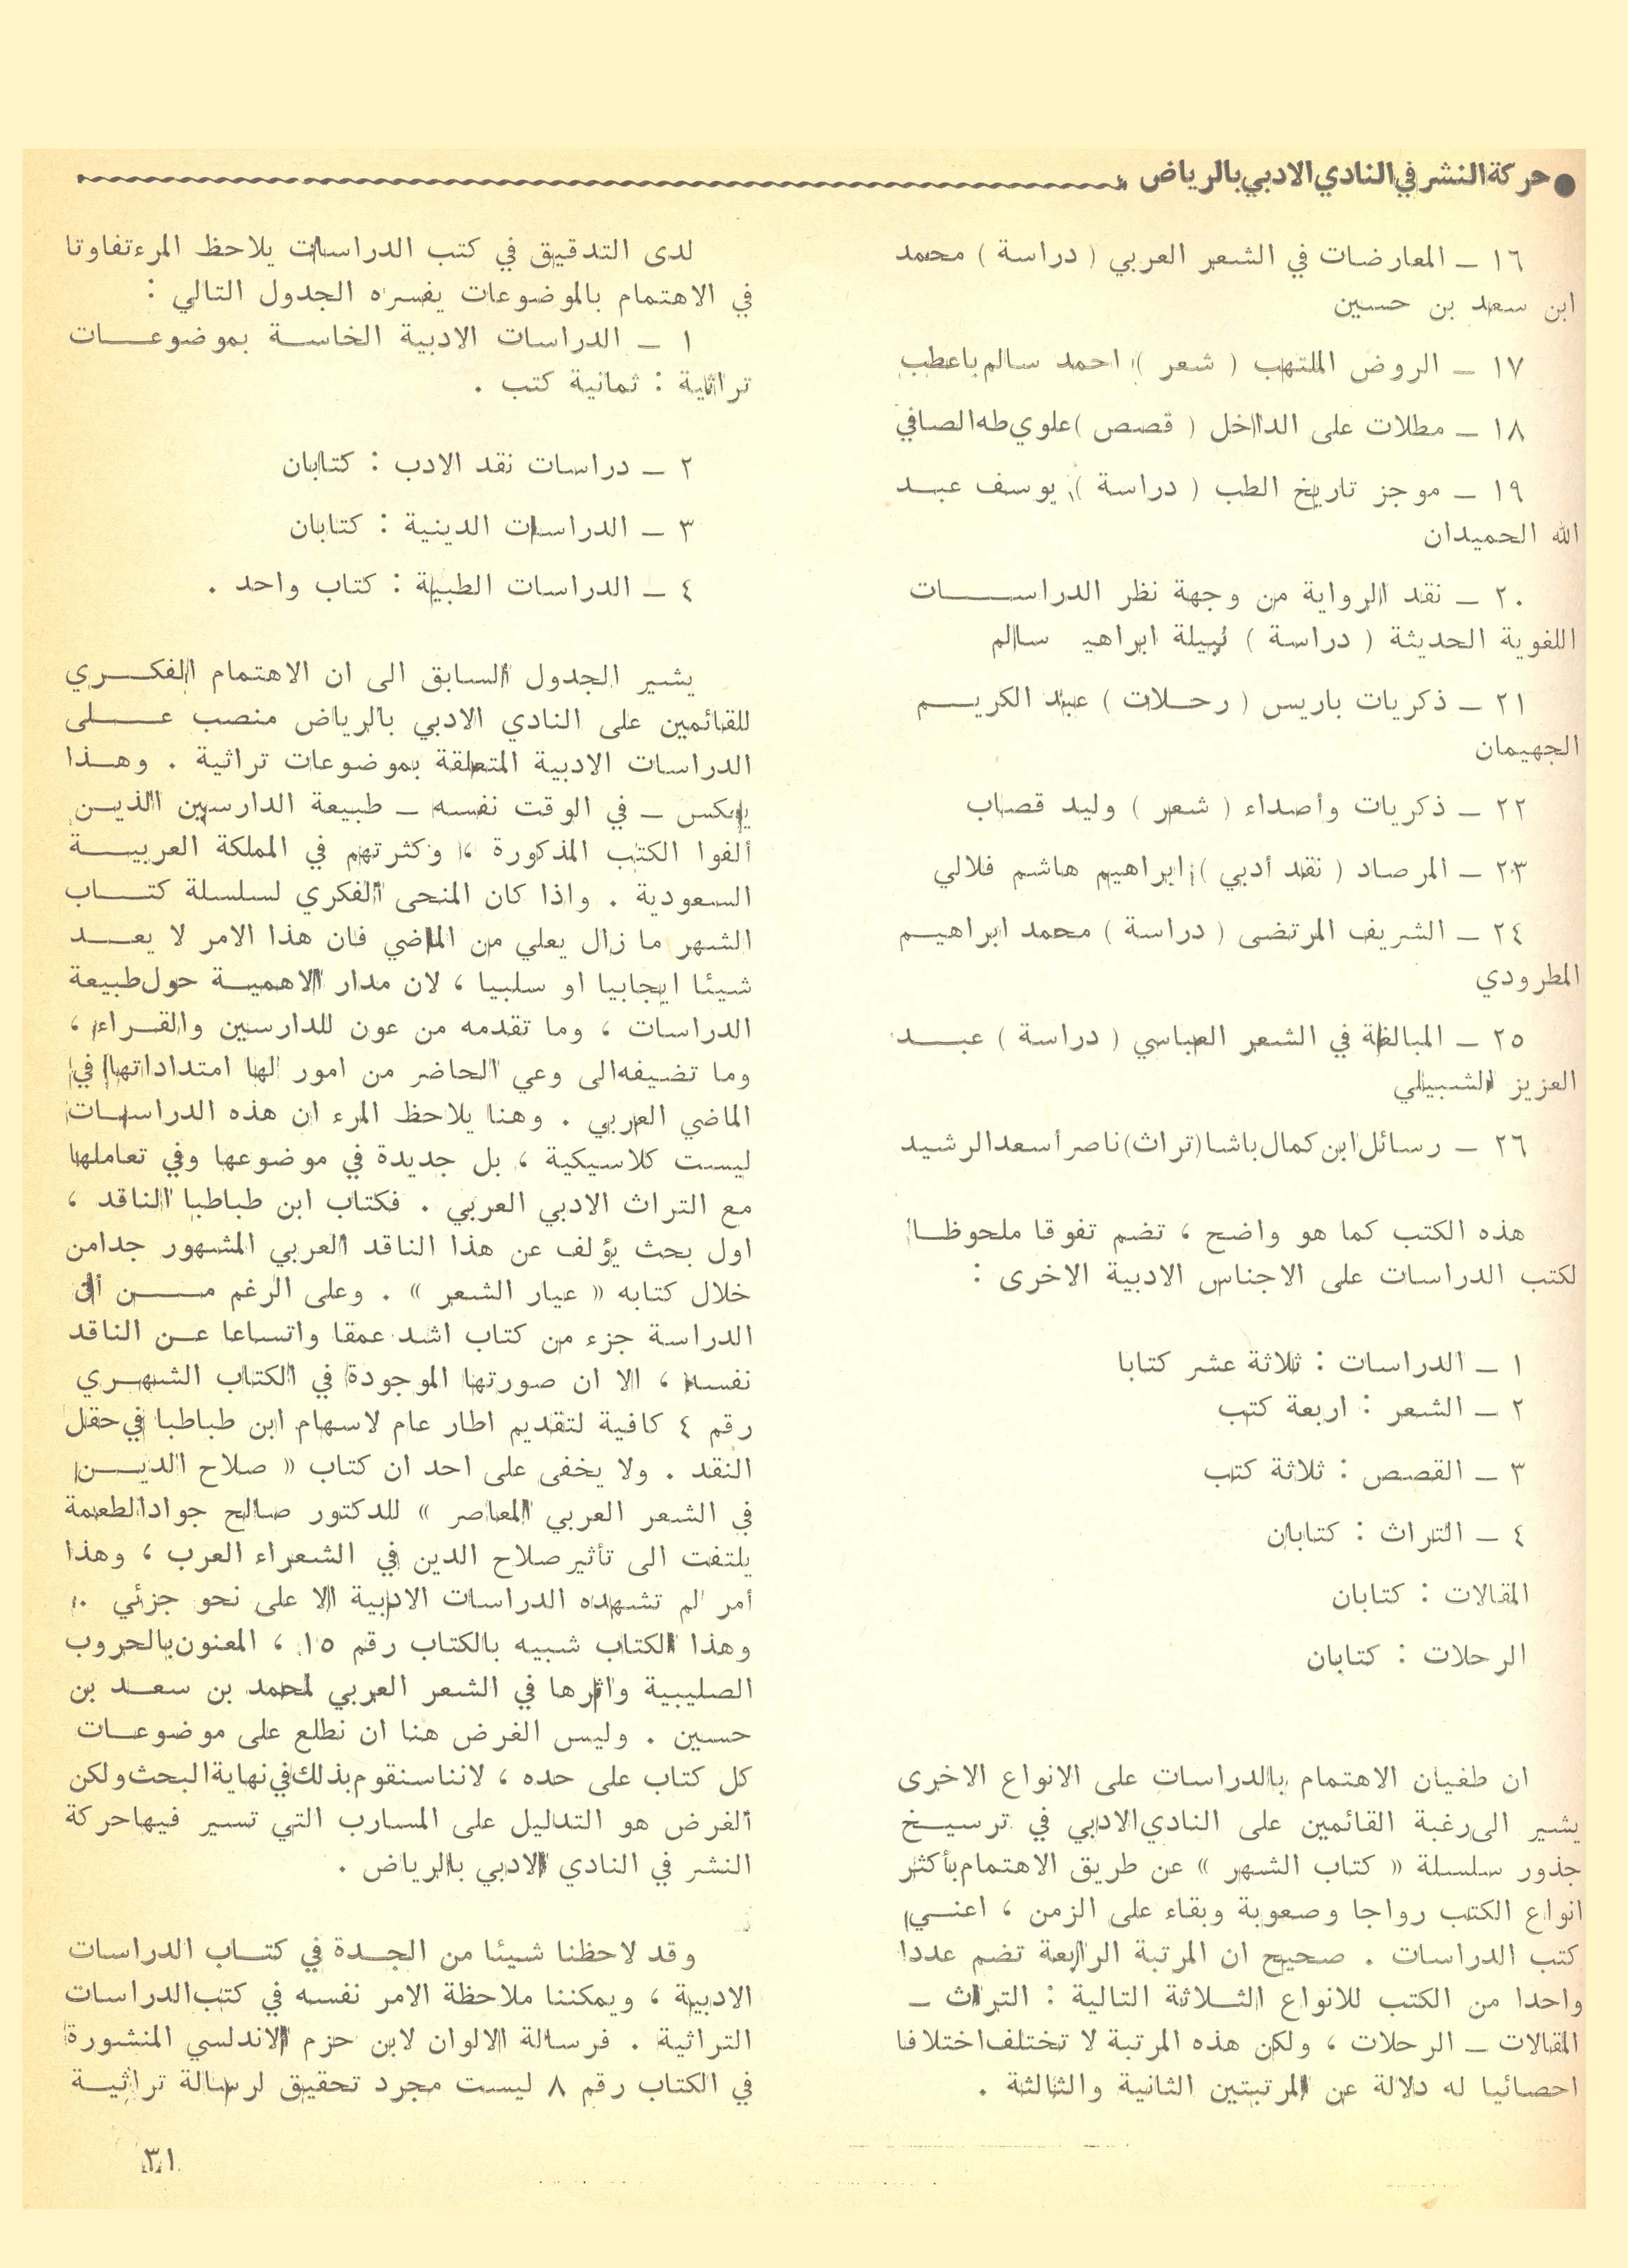 ● حركة النشر في النادي الادبي بالرياض
١٦ ـ المعارضات في الشعر العربي ( دراسة ) محمد
ابن سعد بن حسين
١٧ ـ الروض الملتهب ( شعر ) احمد سالم باعطب
١٨ ـ مطلات على الداخل ( قصص ) علوي طه الصافي
١٩ ـ موجز تاريخ الطب ( دراسة ) يوسف عبد
الله الحميدان
٢٠ ـ نقد الرواية من وجهة نظر الدراسات
اللغوية الحديثة ( دراسة ) نبيلة ابراهيـ سالم
٢١ ـ ذكريات باريس ( رحلات ) عبد الكريم
الجهيمان
٢٢ ـ ذكريات وأصداء ( شعر ) وليد قصاب
٢٣ ـ المرصاد ( نقد أدبي ) ابراهيم هاشم فلالي
٢٤ ـ الشريف المرتضى ( دراسة ) محمد ابراهيم
المطرودي
٢٥ ـ المبالغة في الشعر العباسي ( دراسة ) عبد
العزيز الشبيلي
٢٦ ـ رسائل ابن كمال باشا (تراث) ناصر أسعد الرشيد
هذه الكتب كما هو واضح ، تضم تفوقا ملحوظا
لكتب الدراسات على الاجناس الادبية الاخرى :
١ ـ الدراسات : ثلاثة عشر كتابا
٢ ـ الشعر : اربعة كتب
٣ ـ القصص : ثلاثة كتب
٤ ـ التراث : كتابان
المقالات : كتابان
الرحلات : كتابان
ان طغيان الاهتمام بالدراسات على الانواع الاخرى
يشير الى رغبة القائمين على النادي الادبي في ترسيخ
جذور سلسلة « كتاب الشهر » عن طريق الاهتمام بأكثر
انواع الكتب رواجا وصعوبة وبقاء على الزمن ، اعني
كتب الدراسات . صحيح ان المرتبة الرابعة تضم عددا
واحدا من الكتب للانواع الثلاثة التالية : التراث ـ
المقالات ـ الرحلات ، ولكن هذه المرتبة لا تختلف اختلافا
احصائيا له دلالة عن المرتبتين الثانية والثالثة .
لدى التدقيق في كتب الدراسات يلاحظ المرء تفاوتا
في الاهتمام بالموضوعات يفسره الجدول التالي :
١ ـ الدراسات الادبية الخاسة بموضوعات
تراثية : ثمانية كتب .
٢ ـ دراسات نقد الادب : كتابان
٣ ـ الدراسات الدينية : كتابان
٤ ـ الدراسات الطبية : كتاب واحد .
يشير الجدول السابق الى ان الاهتمام الفكري
للقائمين على النادي الادبي بالرياض منصب على
الدراسات الادبية المتعلقة بموضوعات تراثية . وهذا
يعكس ـ في الوقت نفسه ـ طبيعة الدارسين الذين
ألفوا الكتب المذكورة ، وكثرتهم في المملكة العربية
السعودية . واذا كان المنحى الفكري لسلسلة كتاب
الشهر ما زال يعلي من الماضي فان هذا الامر لا يعد
شيئا ايجابيا او سلبيا ، لان مدار الاهمية حول طبيعة
الدراسات ، وما تقدمه من عون للدارسين والقراء ،
وما تضيفه الى وعي الحاضر من امور لها امتداداتها في
الماضي العربي . وهنا يلاحظ المرء ان هذه الدراسات
ليست كلاسيكية ، بل جديدة في موضوعها وفي تعاملها
مع التراث الادبي العربي . فكتاب ابن طباطبا الناقد ،
اول بحث يؤلف عن هذا الناقد العربي المشهور جدا من
خلال كتابه « عيار الشعر » . وعلى الرغم من أن
الدراسة جزء من كتاب اشد عمقا واتساعا عن الناقد
نفسه ، الا ان صورتها الموجودة في الكتاب الشهري
رقم ٤ كافية لتقديم اطار عام لاسهام ابن طباطبا في حقل
النقد . ولا يخفى على احد ان كتاب « صلاح الدين
في الشعر العربي المعاصر » للدكتور صالح جواد الطعمة
يلتفت الى تأثير صلاح الدين في الشعراء العرب ، وهذا
أمر لم تشهده الدراسات الادبية الا على نحو جزئي .
وهذا الكتاب شبيه بالكتاب رقم ١٥ ، المعنون بالحروب
الصليبية واثرها في الشعر العربي لمحمد بن سعد بن
حسين . وليس الغرض هنا ان نطلع على موضوعات
كل كتاب على حده ، لاننا سنقوم بذلك في نهاية البحث ولكن
الغرض هو التدليل على المسارب التي تسير فيها حركة
النشر في النادي الادبي بالرياض .
وقد لاحظنا شيئا من الجدة في كتاب الدراسات
الادبية ، ويمكننا ملاحظة الامر نفسه في كتب الدراسات
التراثية . فرسالة الالوان لابن حزم الاندلسي المنشورة
في الكتاب رقم ٨ ليست مجرد تحقيق لرسالة تراثية
٣١